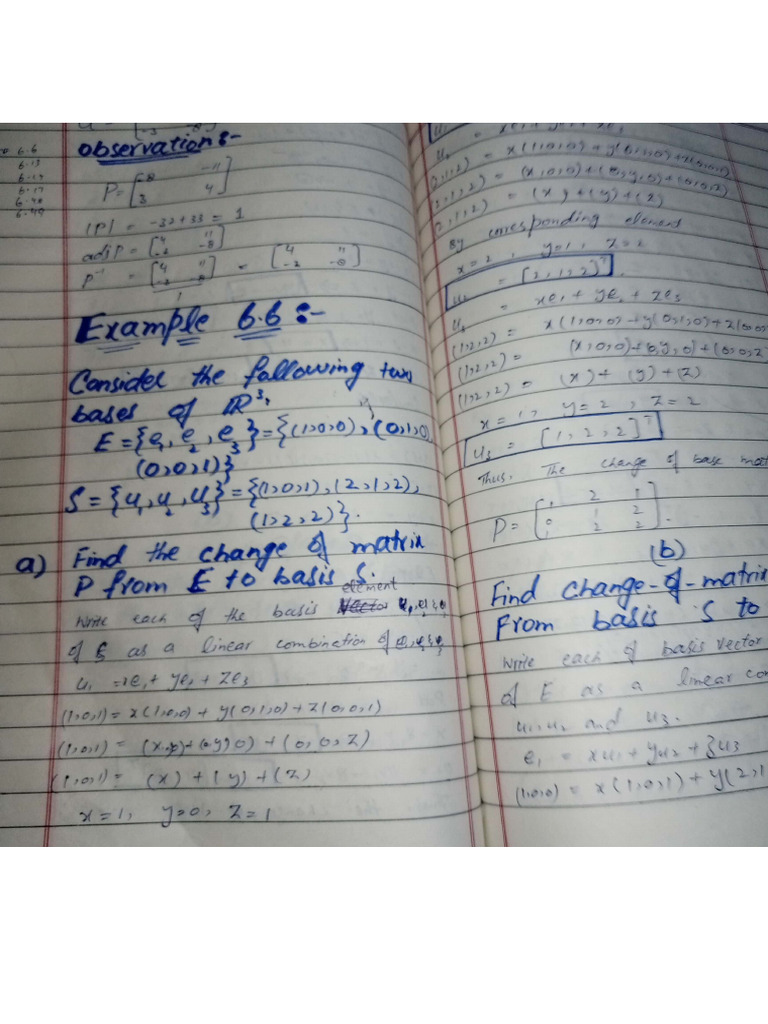 observation:-
P = [-8 -11
3 4]
|P| = -32+33 = 1
adjP = [4 11
-3 -8]
P⁻¹ = [4 11
-3 -8] = [4 11
-3 -8]
1
Example 6.6:-
Consider the following two
bases of R³,
E = {e₁, e₂, e₃} = {(1,0,0), (0,1,0)
(0,0,1)}
S = {u₁, u₂, u₃} = {(1,0,1), (2,1,2),
(1,2,2)}.
a) Find the change of matrix
P from E to basis S.
element
Write each of the basis
of as a linear combination of e₁, e₂, e₃
u₁ = xe₁ + ye₂ + ze₃
(1,0,1) = x(1,0,0) + y(0,1,0) + z(0,0,1)
(1,0,1) = (x,0,0)+(0,y,0) + (0,0,z)
(1,0,1) = (x) + (y) + (z)
x=1, y=0, z=1
6.6
(2,1,2) = x(1,0,0) + y(0,1,0)+z(0,0,1)
(2,1,2) = (x,0,0)+(0,y,0)+(0,0,z)
(2,1,2) = (x)+(y)+(z)
By corresponding element
x=2, y=1, z=2
u₂ = [2,1,2]ᵀ.
u₃ = xe₁ + ye₂ + ze₃
(1,2,2) = x(1,0,0)+y(0,1,0)+z(0,0
(1,2,2) = (x,0,0)+(0,y,0)+(0,0,z
(1,2,2) = (x)+ (y)+(z)
x=1, y=2, z=2
u₃ = [1,2,2]ᵀ
Thus, The change of base
P = [1 2 1
0 1 2
1 2 2].
(b)
Find change-of-matrix
From basis S to
Write each of basis vector
of E as a linear
u₁, u₂ and u₃.
e₁ = xu₁ + yu₂ + zu₃
(1,0,0) = x(1,0,1) + y(2,1